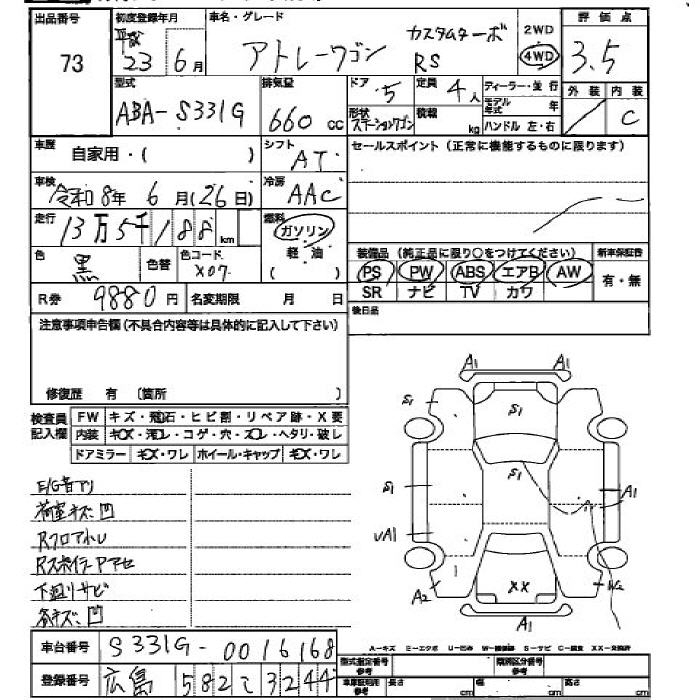 出品番号 初度登録年月 車名・グレード 評価点
73 平成 23年 6月 アトレーワゴン カスタムターボ RS 2WD 4WD 3.5
型式 排気量 ドア 5 定員 4人 ディーラー・並行 外装 内装
ABA-S331G 660cc 形状 ステーションワゴン 積載 kg モデル年式 年 ハンドル 左・右 C
車歴 自家用・( ) シフト AT セールスポイント(正常に機能するものに限ります)
車検 令和8年 6月(26日) 冷房 AAC
走行 13万5千188km 燃料 ガソリン 軽油
色 黒 色替 色コード X07 装備品(純正品に限り○をつけてください) 新車保証書
PS PW ABS エアB AW 有・無
SR ナビ TV カワ
R券 9880円 名変期限 月 日 後日品
注意事項申告欄(不具合内容等は具体的に記入して下さい)
修復歴 有 〔箇所 〕
検査員記入欄 FW キズ・飛石・ヒビ割・リペア跡・X要
内装 キズ・汚レ・コゲ・穴・スレ・ヘタリ・破レ
ドアミラー キズ・ワレ ホイール・キャップ キズ・ワレ
E/G音アリ
荷室キズ凹
Rフロアトレ
Rスポイラーアアセ
下廻りサビ
各キズ凹
A1 A1
S1 S1
S1 S1 A1
UA1
A2 XX W2
A1
車台番号 S331G-0016168
A-キズ E-エクボ U-凹み W-補修跡 S-サビ C-腐食 XX-交換済
登録番号 広島 582 て 3244
型式指定番号 参考 類別区分番号 参考
車庫証明用 参考 長さ cm 幅 cm 高さ cm